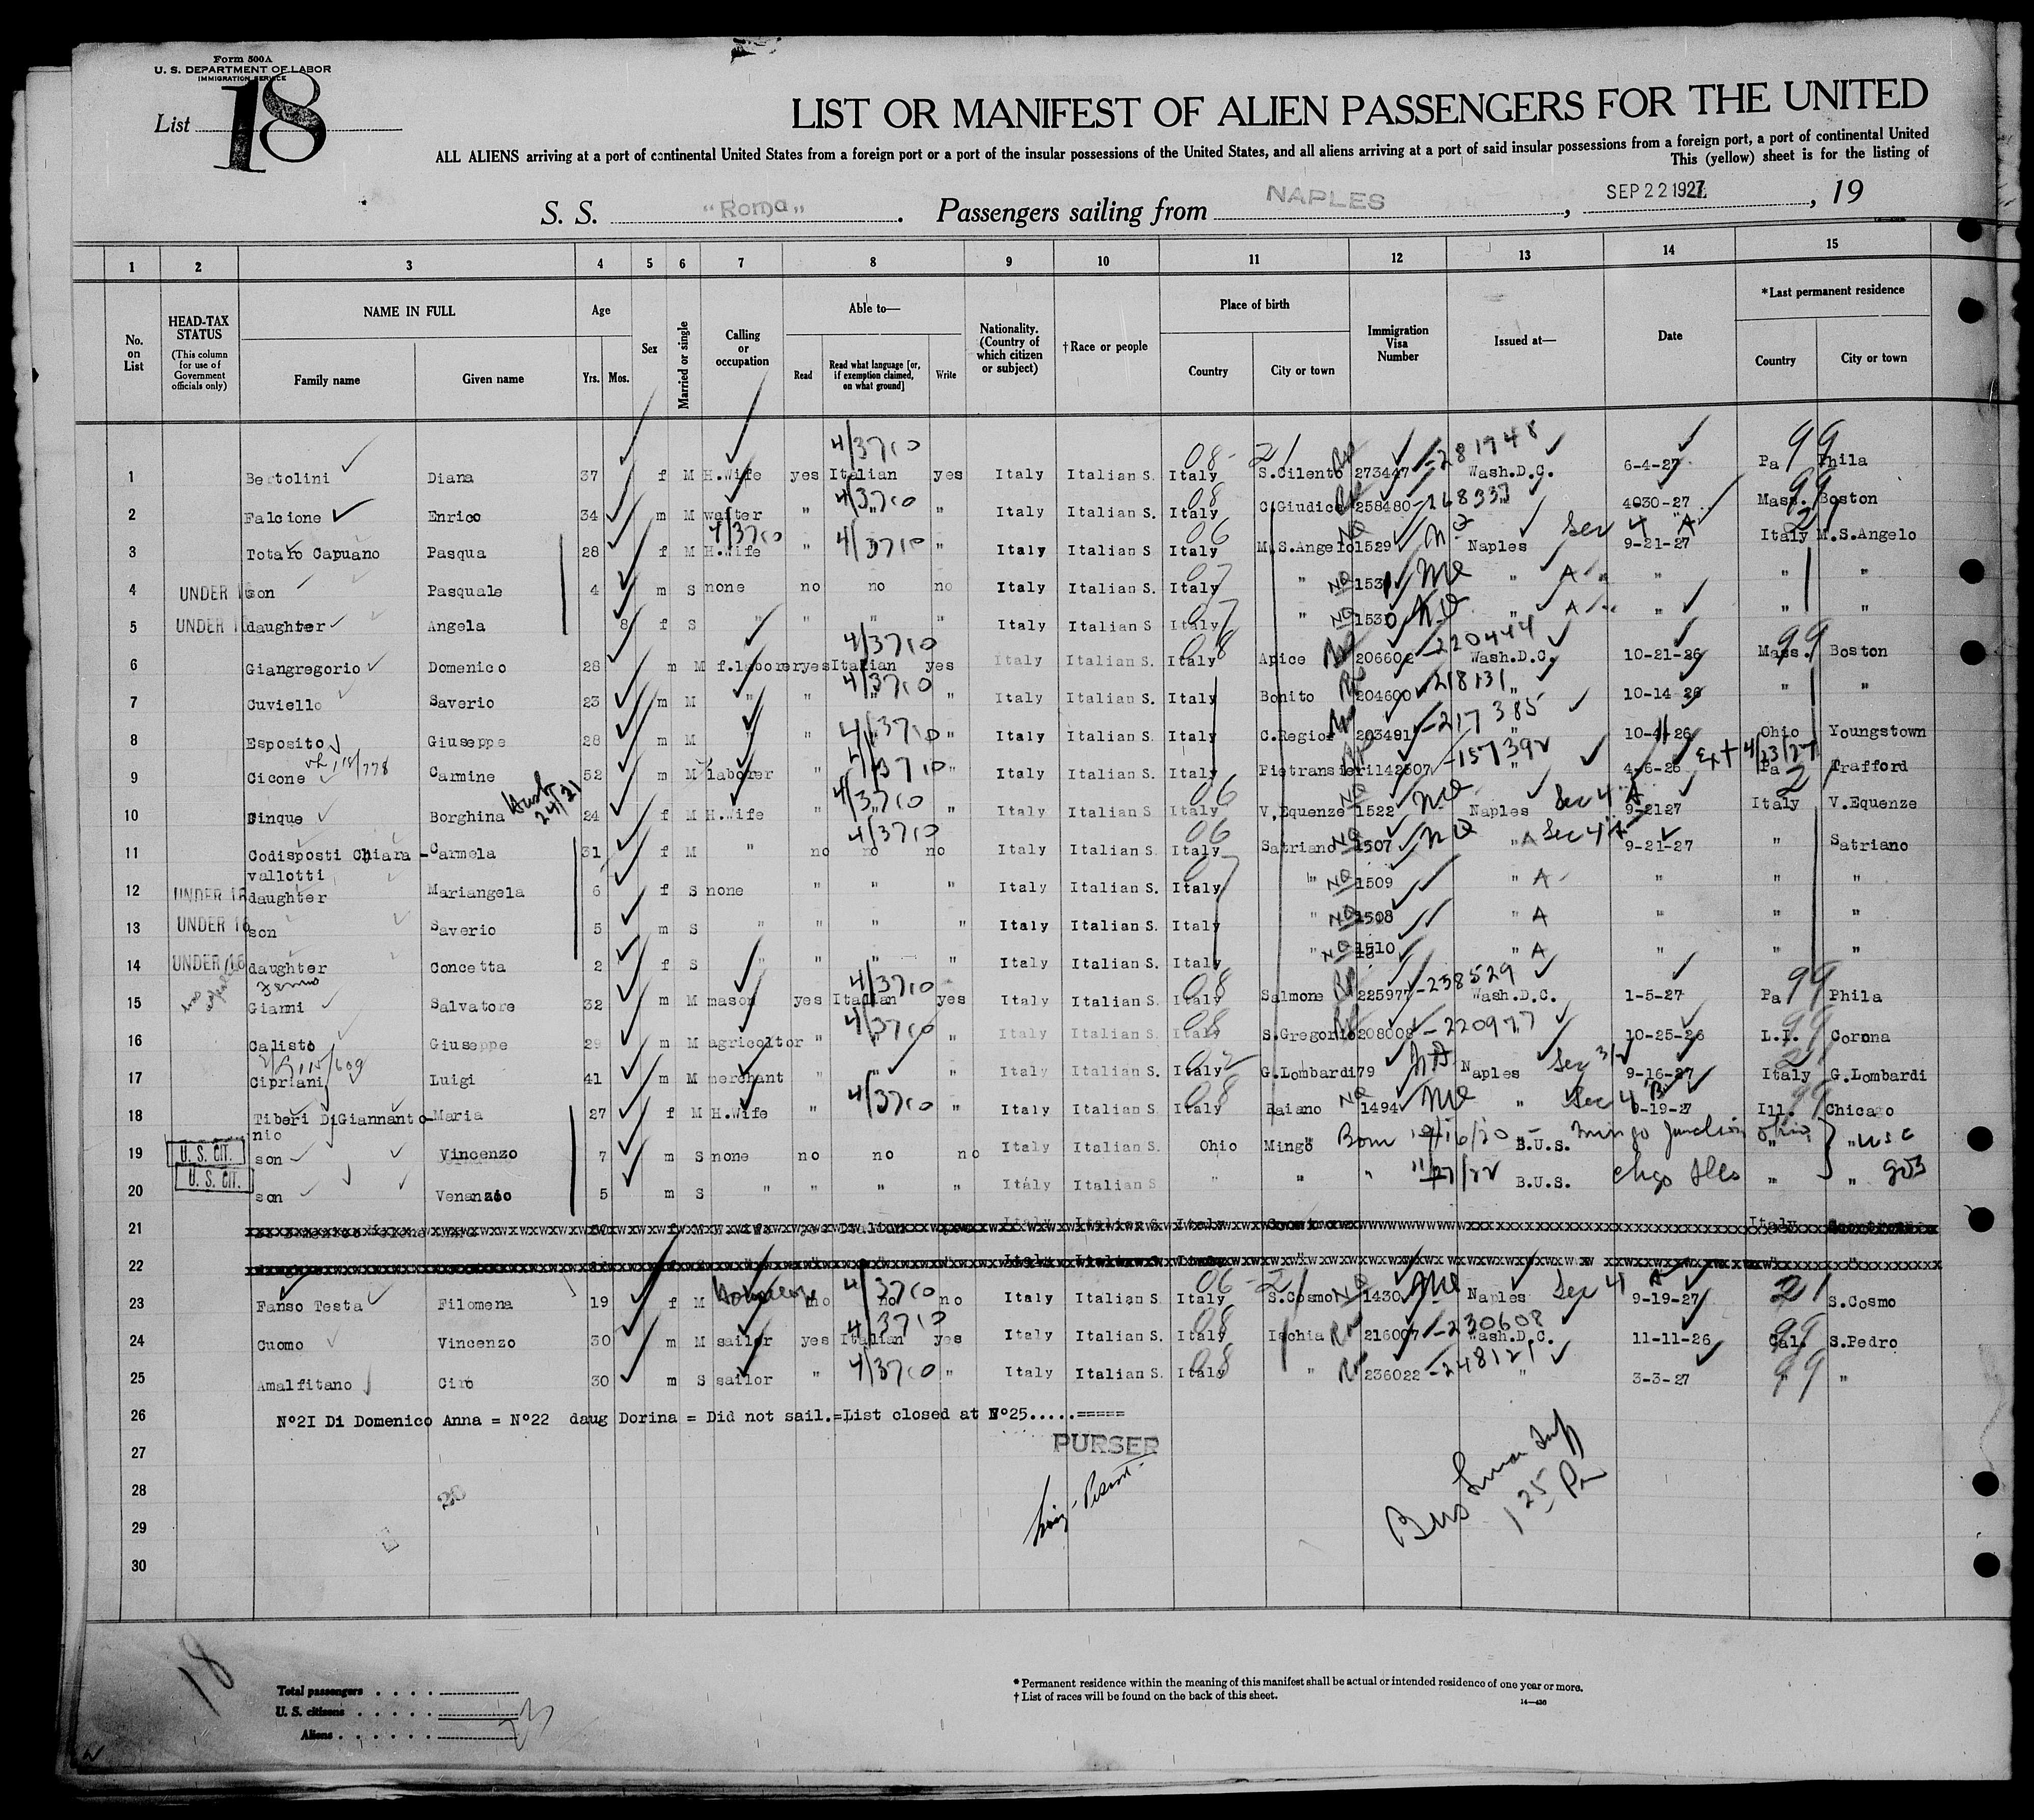 Form 500A
U. S. DEPARTMENT OF LABOR
IMMIGRATION SERVICE
List 18
LIST OR MANIFEST OF ALIEN PASSENGERS FOR THE UNITED
ALL ALIENS arriving at a port of continental United States from a foreign port or a port of the insular possessions of the United States, and all aliens arriving at a port of said insular possessions from a foreign port, a port of continental United
This (yellow) sheet is for the listing of
S. S. "Roma". Passengers sailing from NAPLES, SEP 22 1927, 19
1 2 3 4 5 6 7 8 9 10 11 12 13 14 15
No. on List
HEAD-TAX STATUS (This column for use of Government officials only)
NAME IN FULL Family name Given name
Age Yrs. Mos.
Sex
Married or single
Calling or occupation
Able to— Read Read what language [or, if exemption claimed, on what ground] Write
Nationality. (Country of which citizen or subject)
†Race or people
Place of birth Country City or town
Immigration Visa Number
Issued at—
Date
*Last permanent residence Country City or town
1 Bertolini Diana 37 f M H.Wife yes Italian 4/3710 yes Italy Italian S. Italy 08-21 S.Cilento 273447 -281948 Wash.D.C. 6-4-27 Pa 99 Phila
2 Falcione Enrico 34 m M waiter " " 4/3710 " Italy Italian S. Italy 08 C.Giudice 258480 -268337 " 4030-27 Mass. 99 Boston
3 Totaro Capuano Pasqua 28 f M H.Wife 4/3710 " 4/3710 " Italy Italian S. Italy 06 M.S.Angelo NQ 1529 NQ Naples Sec 4 A 9-21-27 Italy 21 M.S.Angelo
4 UNDER 16 son Pasquale 4 m S none no no no Italy Italian S. Italy 07 " NQ 1531 NQ " A " " " "
5 UNDER 16 daughter Angela 8 f S " " " " Italy Italian S Italy 07 " NQ 1530 NQ " A " " " "
6 Giangregorio Domenico 28 m M f.laborer yes Italian 4/3710 yes Italy Italian S. Italy 08 Apice 206602 -220444 Wash.D.C. 10-21-26 Mass. 99 Boston
7 Cuviello Saverio 23 m M " " " 4/3710 " Italy Italian S. Italy Bonito 204600 -218131 " 10-14 26 " "
8 Esposito Giuseppe 28 m M " " " 4/3710 " Italy Italian S. Italy C.Regior 203491 -217385 " 10-11-26 Ohio Youngstown
9 Cicone Carmine 52 m M laborer " " 4/3710 " Italy Italian S. Italy Pietransieri 142507 -157392 " 4-6-26 Ext 4/23/27 Pa Trafford
10 Cinque Borghina 24 f M H.Wife " " 4/3710 " Italy Italian S. Italy 06 V.Equenze NQ 1522 NQ Naples Sec 4 A 9-2127 Italy V.Equenze
11 Codisposti Chiara - Carmela 31 f M " no no 4/3710 no Italy Italian S. Italy 06 Satriano NQ 1507 NQ " A Sec 4 A 9-21-27 " Satriano
vallotti
12 UNDER 16 daughter Mariangela 6 f S none " " " Italy Italian S. Italy 07 " NQ 1509 " A " " "
13 UNDER 16 son Saverio 5 m S " " " " Italy Italian S. Italy " NQ 1508 " A " " "
14 UNDER 16 daughter Concetta 2 f S " " " " Italy Italian S. Italy " NQ 1510 " A " " "
15 Gianni Salvatore 32 m M mason yes Italian 4/3710 yes Italy Italian S. Italy 08 Salmone 225977 -238529 Wash.D.C. 1-5-27 Pa 99 Phila
16 Calisto Giuseppe 29 m M agricoltor " " 4/3710 " Italy Italian S. Italy 08 S.Gregorio 208008 -220977 " 10-25-26 L.I. 99 Corona
17 Cipriani Luigi 41 m M merchant " " " Italy Italian S. Italy G.Lombardi 79 Naples Sec 3/2 9-16-27 Italy 21 G.Lombardi
18 Tiberi DiGiannanto- Maria 27 f M H.Wife " 4/3710 " Italy Italian S. Italy 08 Raiano NQ 1494 NQ " Sec 4 B 9-19-27 Ill. 99 Chicago
nio
19 U. S. CIT. son Vincenzo 7 m S none no no no Italy Italian S. Ohio Mingo Born B.U.S. Mingo Junction Ohio " " USC
20 U. S. CIT. son Venanzio 5 m S " " " " Italy Italian S " " " 11/27/22 B.U.S. Chgo Ills " "
21
22
23 Fanso Testa Filomena 19 f M Housewife no no 4/3710 no Italy Italian S. Italy 06-21 S.Cosmo NQ 1430 NQ Naples Sec 4 A 9-19-27 21 S.Cosmo
24 Cuomo Vincenzo 30 m M sailor yes Italian 4/3710 yes Italy Italian S. Italy 08 Ischia 216007 -230608 Wash.D.C. 11-11-26 Cal. 99 S.Pedro
25 Amalfitano Ciro 30 m S sailor " 4/3710 " Italy Italian S. Italy 08 " 236022 -248121 " 3-3-27 99 "
26 Nº2I Di Domenico Anna = Nº22 daug Dorina = Did not sail.=List closed at Nº25.....=====
27 PURSER
28
29
30
1 25 Pm
18
Total passengers
U. S. citizens
Aliens
* Permanent residence within the meaning of this manifest shall be actual or intended residence of one year or more.
† List of races will be found on the back of this sheet.
14—430